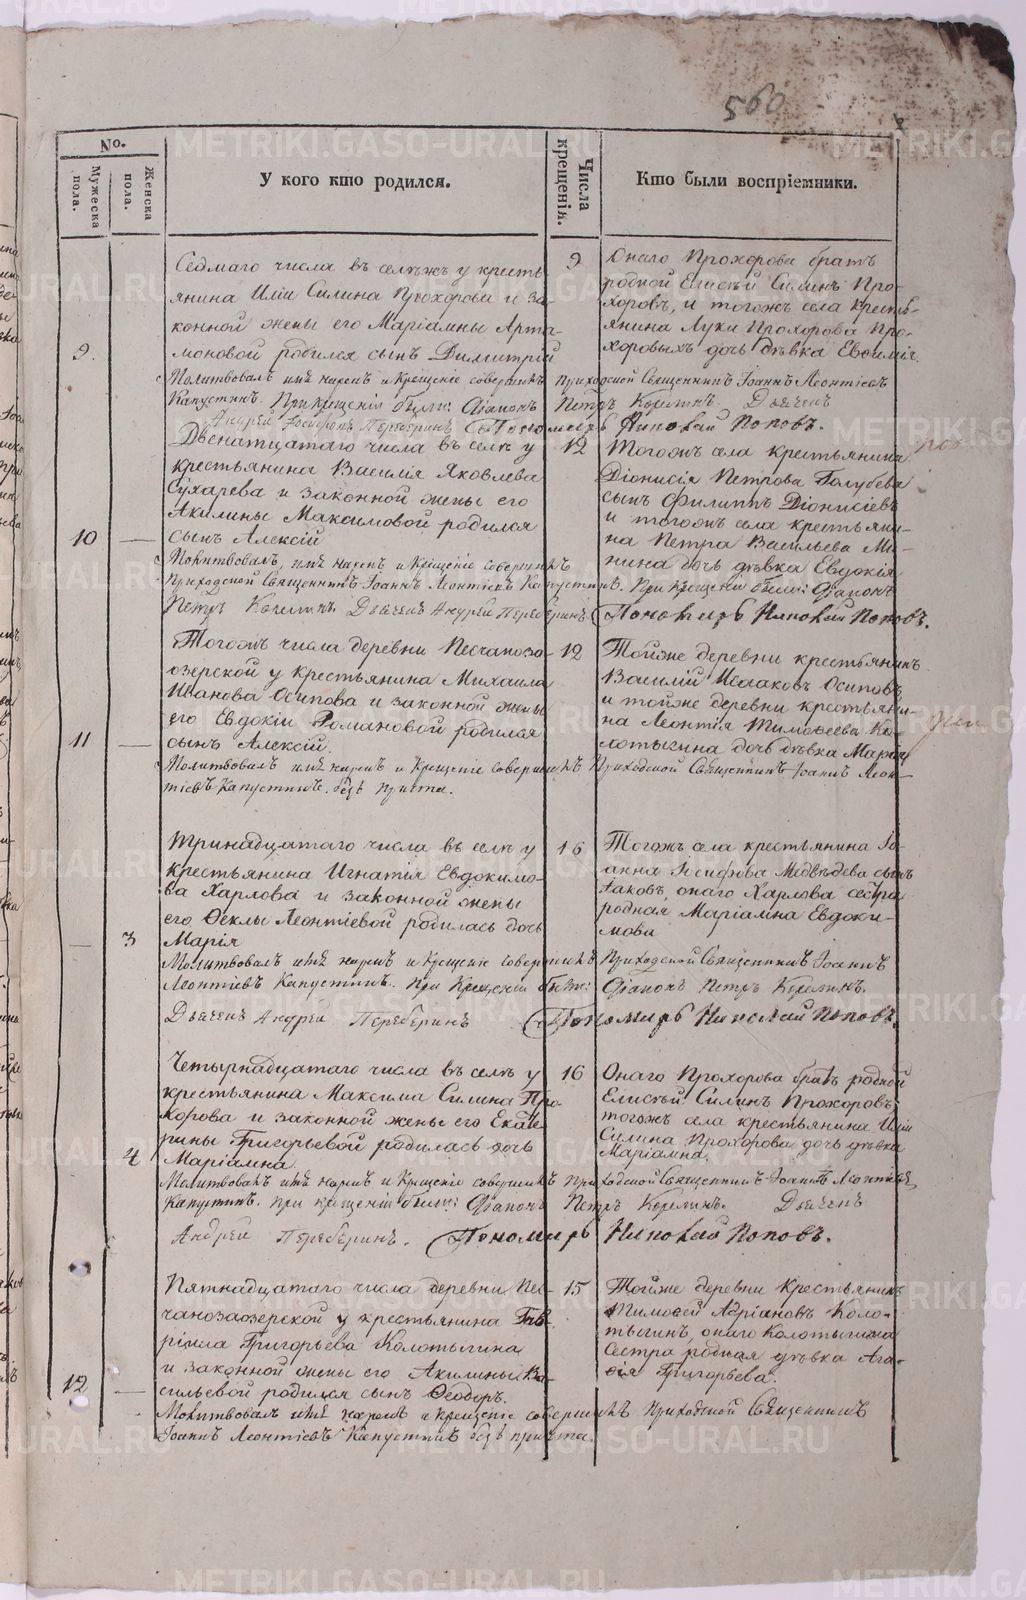 560
No.
Мужеска пола.
Женска пола.
У кого кто родился.
Числа крещенія.
Кто были воспріемники.
9.
Седмаго числа въ селѣжъ у кресть-
янина Иліи Силина Прохорова и за-
конной жены его Маріамны Арта-
моновой родился сынъ Димитрій
9
Онаго Прохорова братъ
родной Елисѣй Силинъ Про-
хоровъ, и тогожъ села кресть-
янина Луки Прохорова Про-
хоровыхъ дочь дѣвка Евѳимія.
Молитвовалъ имя нарекъ и Крещеніе совершилъ Приходской Священникъ Іоаннъ Леонтіевъ
Капустинъ. При крещеніи были: Діаконъ Петръ Корелинъ. Дьячекъ
Андрей Переберинъ Пономарь Николай Поповъ.
10
Двенатцатаго числа въ селѣ у
крестьянина Василія Яковлева
Сухарева и законной жены его
Акилины Максимовой родился
сынъ Алексій
12
Тогожъ села крестьянина
Діонисія Петрова Голубева
сынъ Филиппъ Діонисіевъ
и тогожъ села крестьяни-
на Петра Васильева Ми-
нина дочь дѣвка Евдокія
Молитвовалъ, имя нарекъ и Крещеніе совершилъ
Приходской Священникъ Іоаннъ Леонтіевъ Капустинъ. При крещеніи были: Діаконъ
Петръ Корелинъ. Дьячекъ Андрей Переберинъ. Пономарь Николай Поповъ.
11
Тогожъ числа деревни Песчаноза-
озерской у крестьянина Михаила
Иванова Осипова и законной жены
его Евдокіи Романовой родился
сынъ Алексій.
12
Тойже деревни крестьянинъ
Василій Исааковъ Осиповъ
и тойже деревни крестьяни-
на Леонтія Тимоѳеева Ко-
лотыгина дочь дѣвка Марія
Молитвовалъ имя нарекъ и Крещеніе совершилъ Приходской Священникъ Іоаннъ Леон-
тіевъ Капустинъ. безъ причта.
3
Тринадцатаго числа въ селѣ у
крестьянина Игнатія Евдокимо-
ва Харлова и законной жены
его Ѳеклы Леонтіевой родилась дочь
Марія
16
Тогожъ села крестьянина Іо-
анна Іосифова Медвѣдева сынъ
Іаковъ, онаго Харлова сестра
родная Маріамна Евдоки-
мова
Молитвовалъ имя нарекъ и Крещеніе совершилъ Приходской Священникъ Іоаннъ
Леонтіевъ Капустинъ. При Крещеніи были: Діаконъ Петръ Корелинъ.
Дьячекъ Андрей Переберинъ Пономарь Николай Поповъ.
4
Четырнадцатаго числа въ селѣ у
крестьянина Максима Силина Про-
хорова и законной жены его Екате-
рины Григорьевой родилась дочь
Маріамна
16
Онаго Прохорова братъ родной
Елисѣй Силинъ Прохоровъ,
тогожъ села крестьянина Иліи
Силина Прохорова дочь дѣвка
Маріамна.
Молитвовалъ имя нарекъ и Крещеніе совершилъ Приходской Священникъ Іоаннъ Леонтіевъ
Капустинъ. При крещеніи были: Діаконъ Петръ Корелинъ. Дьячекъ
Андрей Переберинъ. Пономарь Николай Поповъ.
12
Пятнадцатаго числа деревни Пес-
чанозаозерской у крестьянина Гав-
ріила Григорьева Колотыгина
и законной жены его Акилины Ва-
сильевой родился сынъ Ѳеодоръ.
15
Тойже деревни Крестьянинъ
Тимоѳей Адріановъ Коло-
тыгинъ, онаго Колотыгина
сестра родная дѣвка Ага-
ѳія Григорьева.
Молитвовалъ имя нарекъ и крещеніе совершилъ Приходской Священникъ
Іоаннъ Леонтіевъ Капустинъ безъ причта.